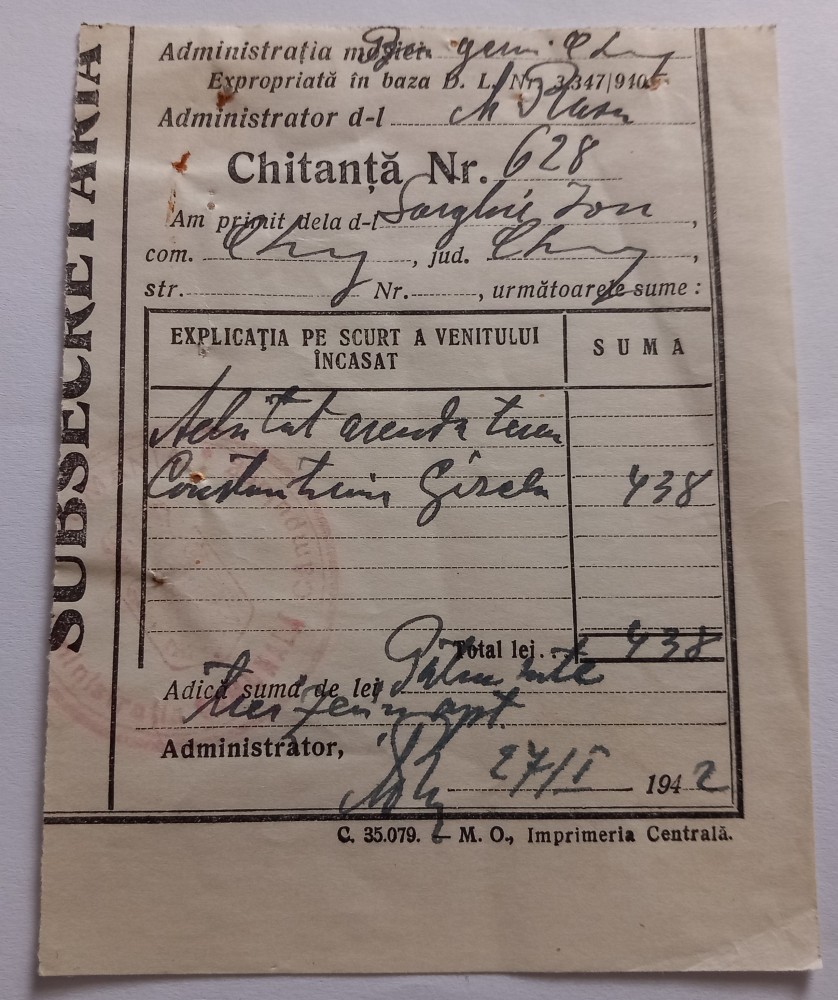 SUBSECRETARIA
Administrația moșiei
Expropriată în baza D. L. Nr. 3.347/940
Administrator d-l
Chitanță Nr. 628
Am primit dela d-l Sarghie Ion,
com. , jud. ,
str. Nr. , următoarele sume :
EXPLICAȚIA PE SCURT A VENITULUI
ÎNCASAT
SUMA
Achitat arenda teren
Constantiniu Gisela 438
Total lei.. 438
Adică suma de lei Patru sute
treizeci și opt
Administrator,
27/I 1942
C. 35.079. — M. O., Imprimeria Centrală.